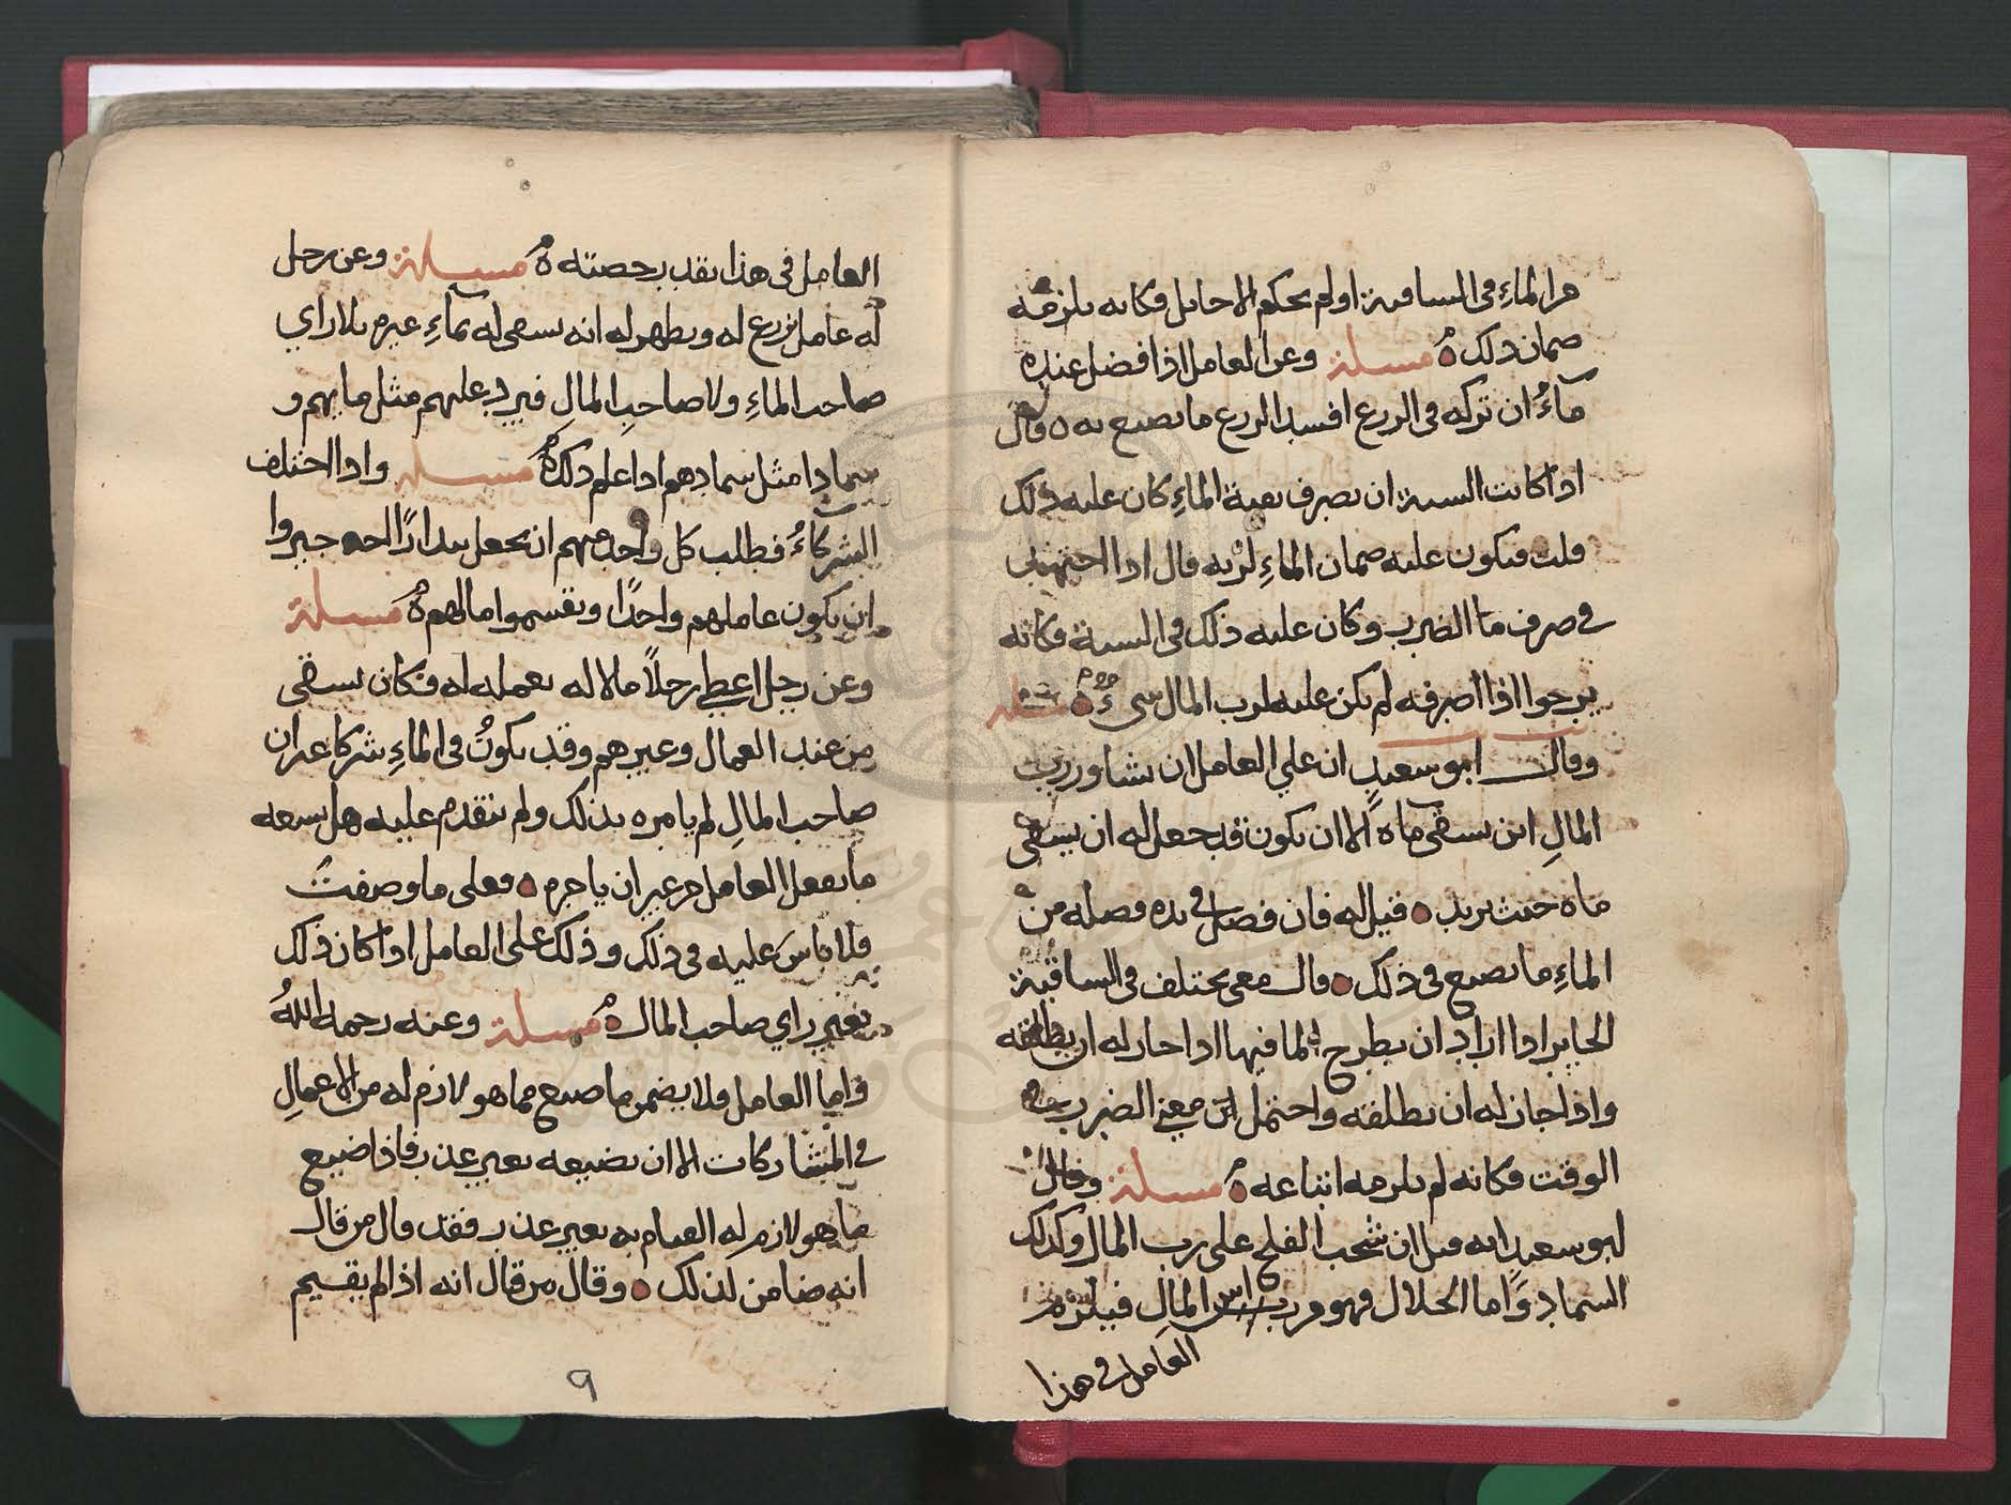 من الماء في الساقية او لم يحكم الاحايل فكانه يلزمه
ضمان ذلك ه مسلة وعن العامل اذا فضل عنده
ماءُ ان تركه في الزرع افسد الزرع ما يصنع به ه قال
اذا كانت السنة ان يصرف بقية الماءِ كان عليه ذلك
قلت فيكون عليه ضمان الماءِ لربه قال اذا احتهد
في صرف ما الضرب وكان عليه ذلك في السنة فكانه
يرجوا اذا اصرفه لم يكن عليه لرب المال شيءٌ ه مسلة
وقال ابو سعيدٍ ان علي العامل ان يشاور رب
المالِ اين يسقي ماه الا ان يكون قد جعل له ان يسقي
ماه حيث يريد ه قيل له فان فضل في يده فضله من
الماءِ ما يصنع في ذلك ه قال معي يختلف في الساقية
الجايز اذا اراد ان يطرح الما فيها اذا جاز له ان يطلقه
واذا جاز له ان يطلقه واحتمل معنى الضرب في
الوقت فكانه لم يلزمه اتباعه ه مسلة وقال
ابو سعيد انه قيل ان شحب الفلج على رب المال وكذلك
السماد وَاما الحلال فهو من راس المالِ فيلزم
العامل في هذا
العامل في هذا بقدر حصته ه مسيلة وعن رجل
له عامل يزرع له ويظهر له انه يسقي له بماءِ غيره بلا راي
صاحب الماءِ ولا صاحبِ المالِ فيرد عليهم مثل مايهم و
سمادا مثل سمادهم اذا علم ذلك ه مسلة واذا اختلف
الشركاءُ فطلب كل واحد منهم ان يجعل بيدارًا لحه جبروا
ان يكون عاملهم واحدًا ويقسموا مالهم ه مسلة
وعن رجل اعطي رجلاً مالا له يعمله له فكان يسقي
من عند العمال وغيرهم وقد يكونُ في الماءِ شركا غير ان
صاحب المالِ لم يامره بذلك ولم يتقدم عليه هل يسعه
ما يفعل العامل من غير ان يامره ه فعلى ما وصفت
فلا باس عليه في ذلك وذلك على العامل اذا كان ذلك
بغير راي صاحب المال ه مسلة وعنه رحمه اللهُ
واما العامل فلا يضمن ما ضيع مما هو لازم له من الاعمالِ
في المشاركات الا ان يضيعه بغير عذر فاذا ضيع
ما هو لازم له القيام به بغير عذر فقد قال من قال
انه ضامن لذلك ه وقال من قال انه اذا لم يقيم
٩